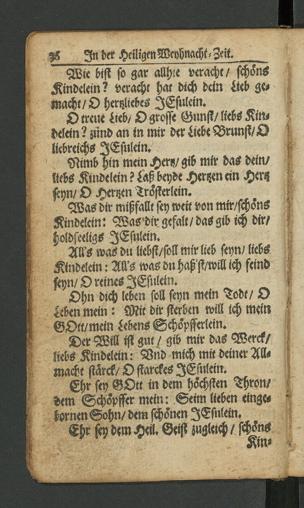 36 In der Heiligen Weyhnacht-Zeit.
Wie bist so gar allhie veracht/ schöns
Kindelein? veracht hat dich dein Lieb ge-
macht/ O hertzliebes JEsulein.
O treue Lieb/ O grosse Gunst/ liebs Kin-
delein? zünd an in mir der Liebe Brunst/ O
liebreichs JEsulein.
Nimb hin mein Hertz/ gib mir das dein/
liebs Kindelein? Laß beyde Hertzen ein Hertz
seyn/ O Hertzen Trösterlein.
Was dir mißfallt sey weit von mir/ schöns
Kindelein: Was dir gefalt/ das gib ich dir/
holdseeligs JEsulein.
All's was du liebst/ soll mir lieb seyn/ liebs
Kindelein: All's was du haß'st/ will ich feind
seyn/ O reines JEsulein.
Ohn dich leben soll seyn mein Todt/ O
Leben mein: Mit dir sterben will ich mein
GOtt/ mein Lebens Schöpfferlein.
Der Will ist gut/ gib mir das Werck/
liebs Kindelein: Vnd mich mit deiner All-
macht stärck/ O starckes JEsulein.
Ehr sey GOtt in dem höchsten Thron/
dem Schöpffer mein: Seim lieben einge-
bornen Sohn/ dem schönen JEsulein.
Ehr sey dem Heil. Geist zugleich/ schöns
Kin-